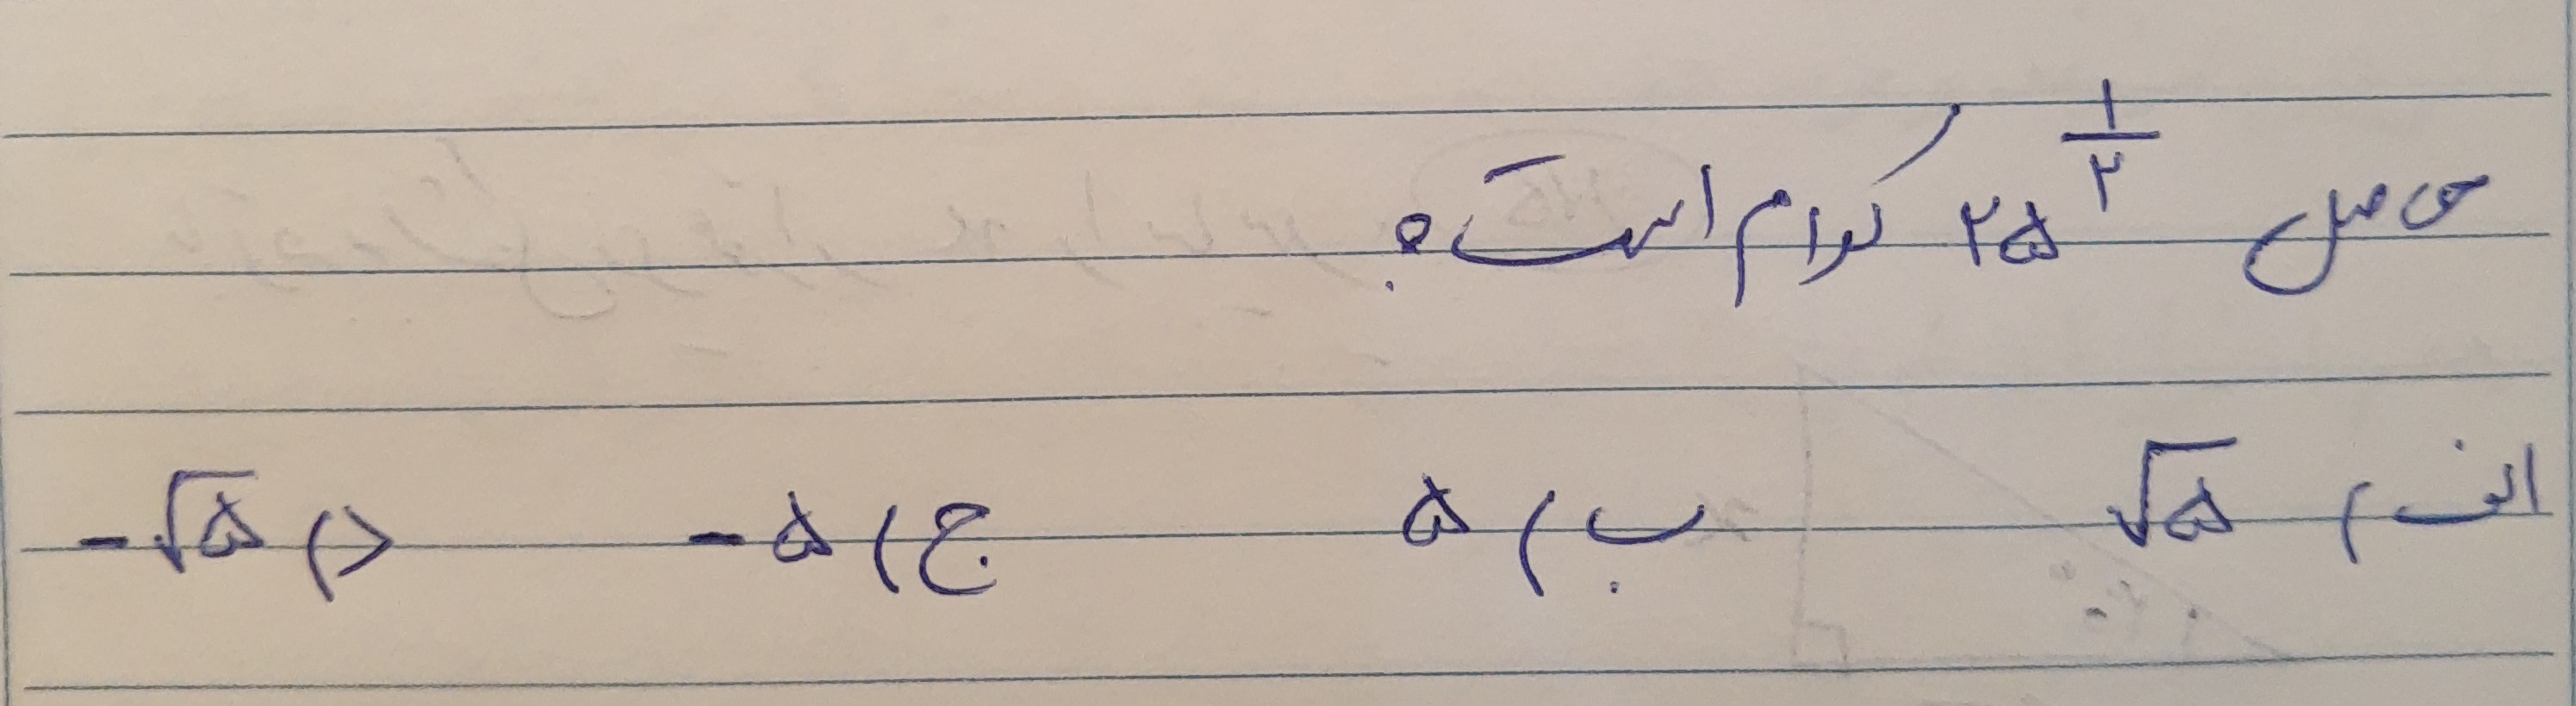 حاصل ۲۵^۱/۲ کدام است؟
الف) √۵ ب) ۵ ج) -۵ د) -√۵